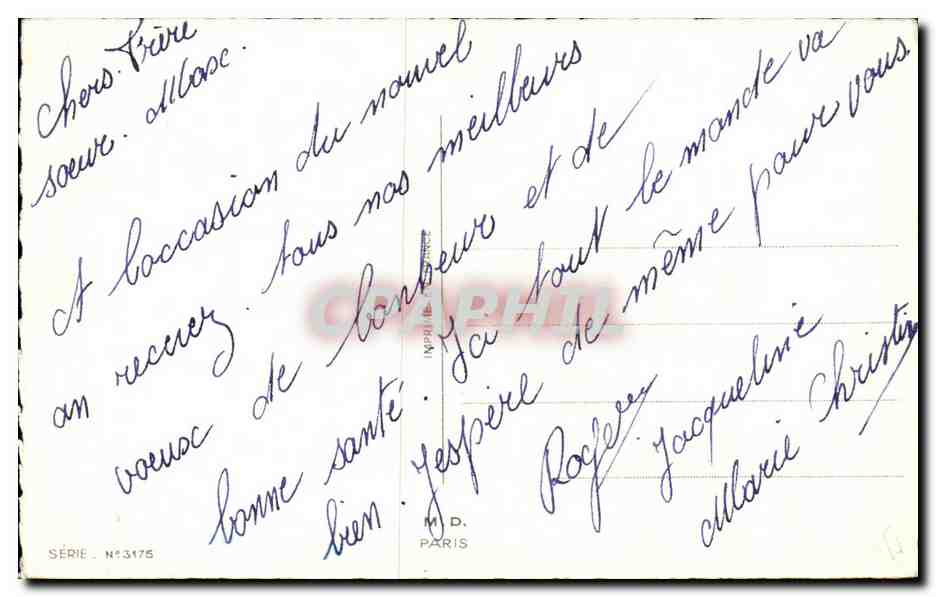 Chers. Frère
soeur. Marc.
A l'occasion du nouvel
an recevez. tous nos meilleurs
voeux de bonheur et de
bonne santé. Ici tout le monde va
bien. J'espère de même pour vous
Roger
Jacqueline
Marie Christine
IMPRIMÉ EN FRANCE
CPAPHIL
M. D.
PARIS
SÉRIE. N° 3175